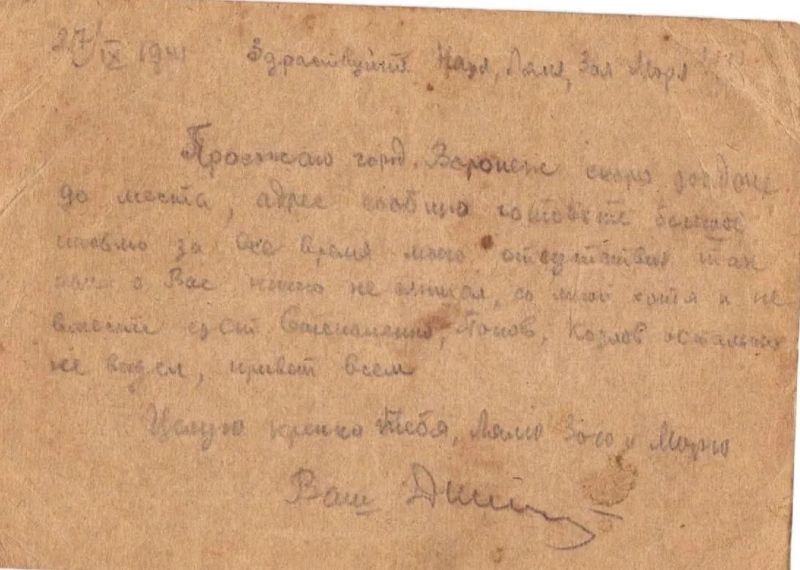 27/IX 1941 Здраствуйте Надя, Ляля, Зоя Мэря
Проезжаю город Воронеж скоро доедем
до места, адрес сообщу готовьте большое
письмо за все время моего отсутствия так
как о Вас ничего не слышал, со мной хотя и не
вместе едет Попов, Козлов остальных
не видел, привет всем
Целую крепко Тебя, Лялю Зою и Мэрю
Ваш